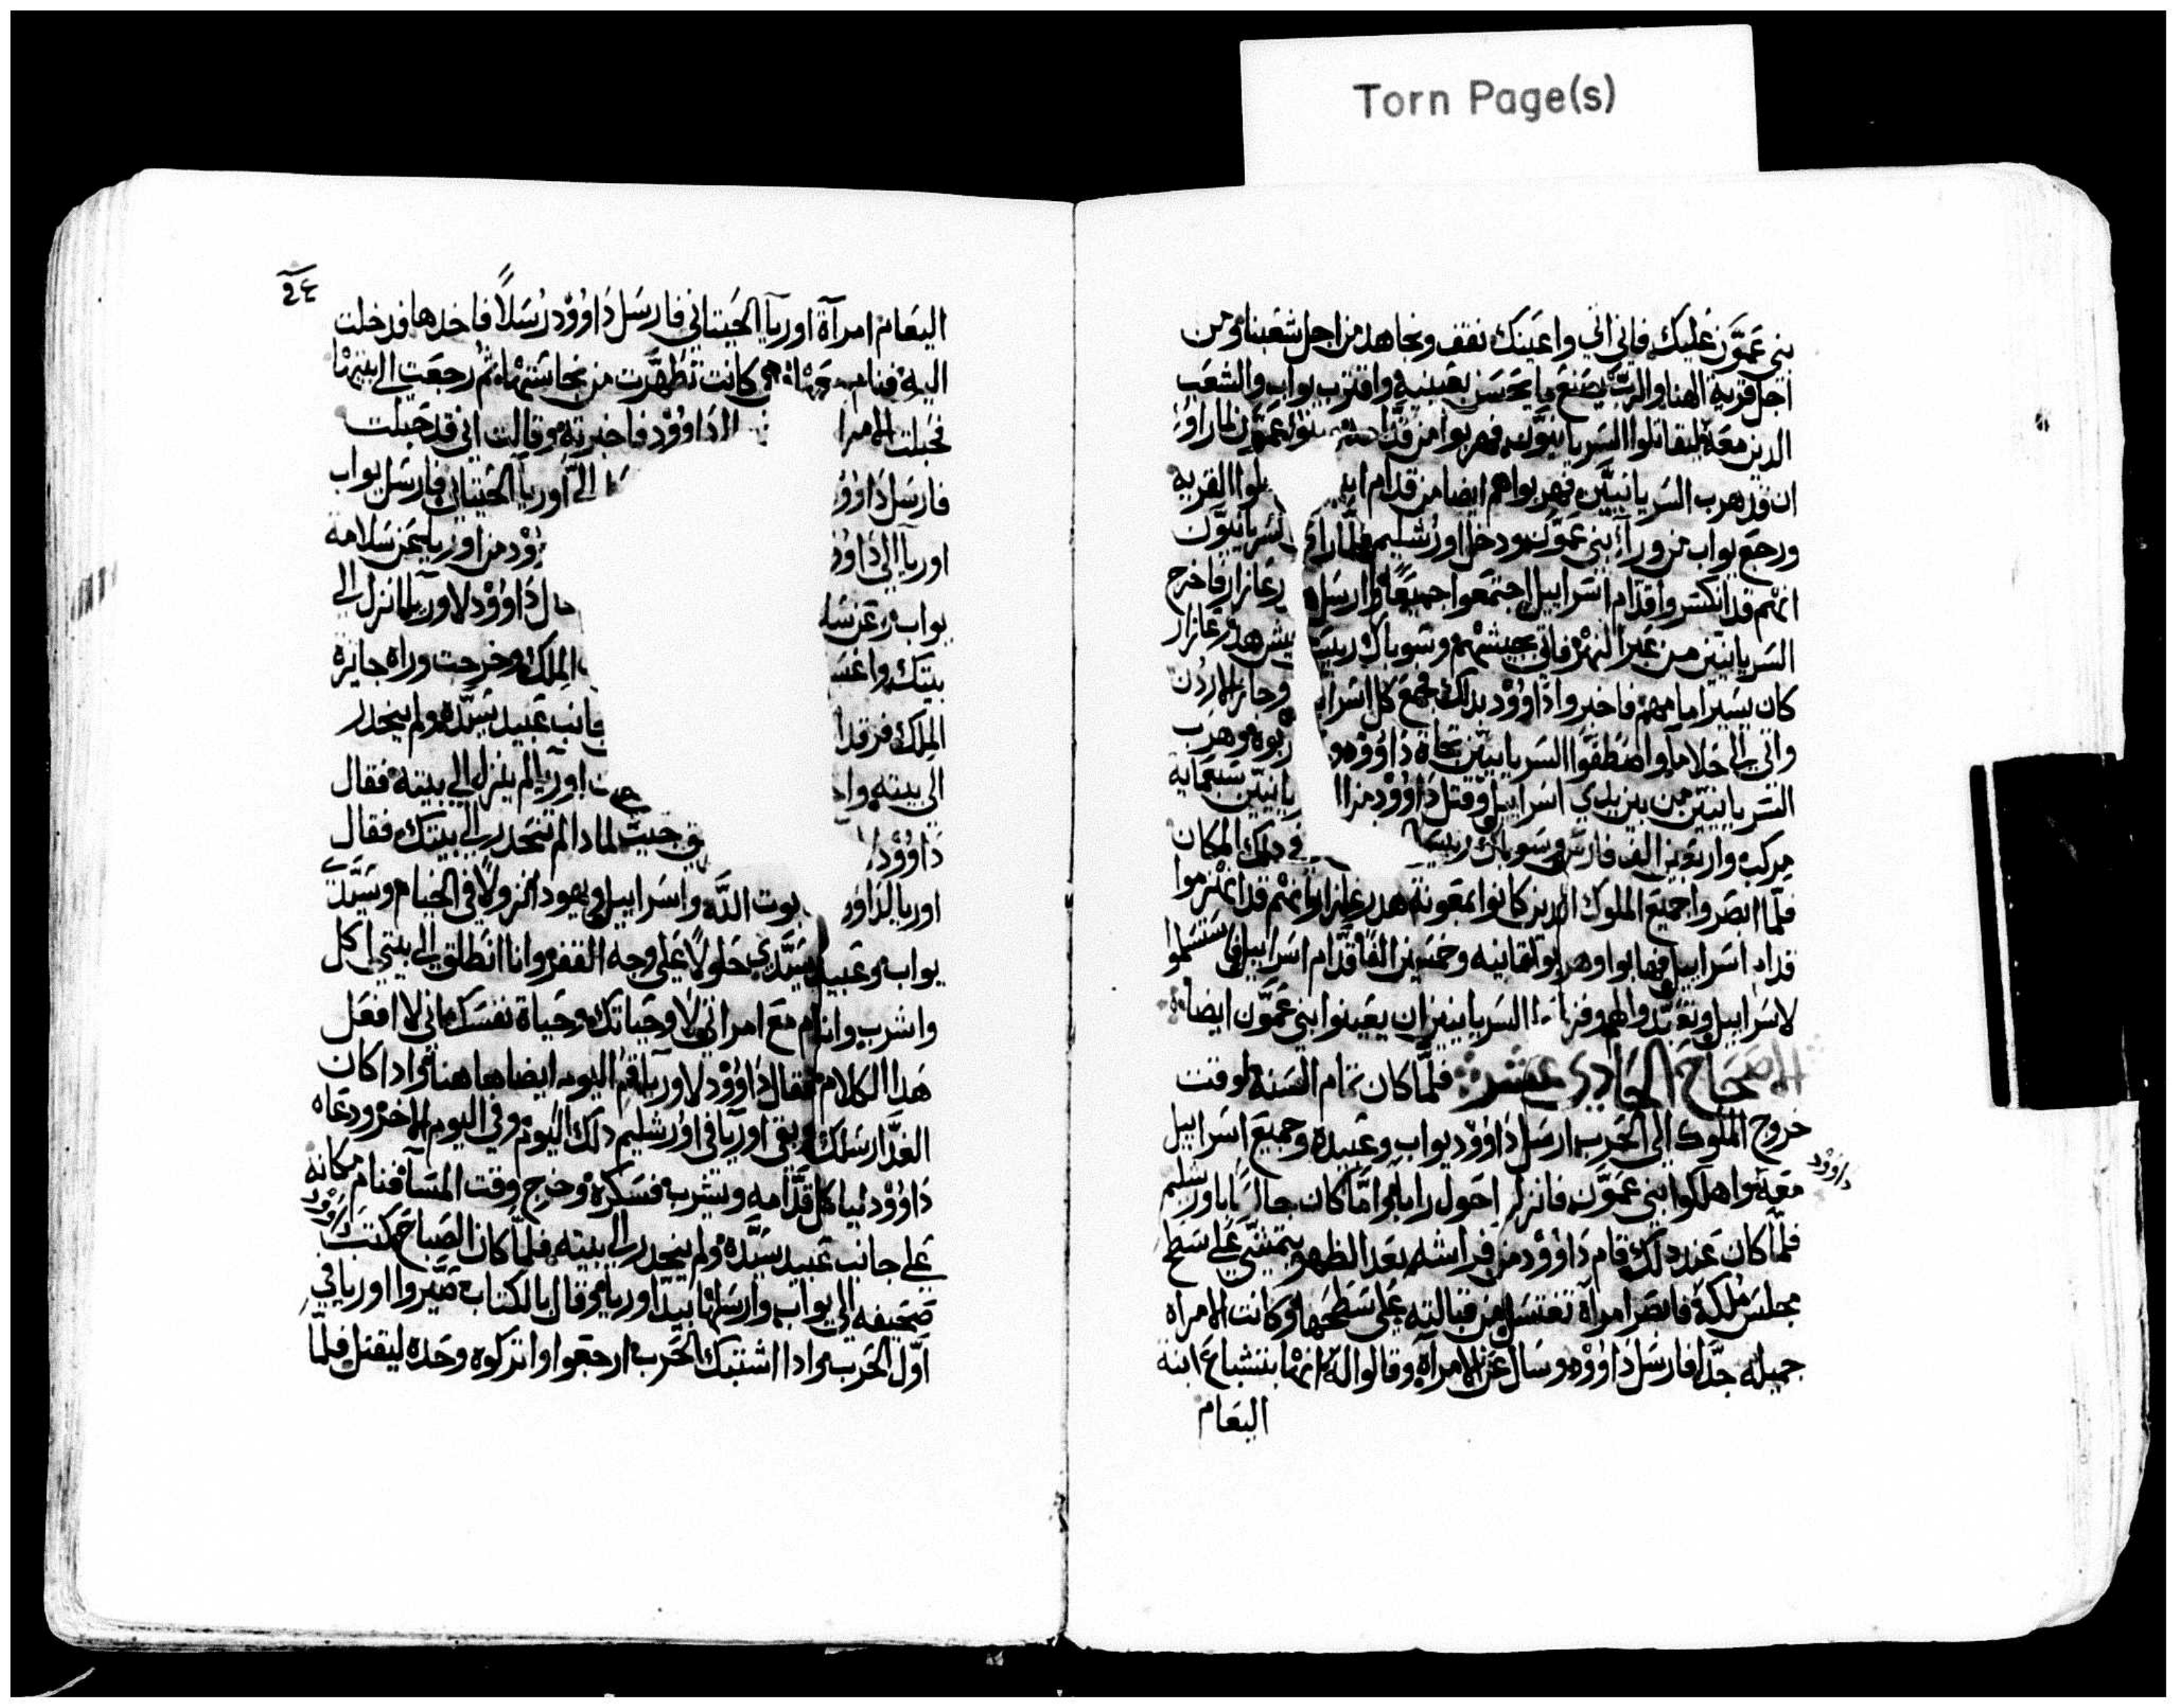 Torn Page(s)
بني عمون عليك فاني اتي واعينك نقف ونجاهد من اجل شعبنا ومن
اجل قرية الهنا والرب يصنع ما يحسن بعينيه واقترب يواب والشعب
الدين معه ليقاتلوا السريانيون فهربوا من قدامهم بنوا عمون لما راوا
ان قد هرب السريانيين فهربوا هم ايضا من قدام القريه
ورجع يواب من ورآء بني عمون ودخل اورشليم فلما راوا السريانيون
انهم قد انكسروا قدام اسراييل اجتمعوا جميعًا وارسل رعازار فاخرج
السريانيين من عبر النهر فاتي بجيشهم وسوباك رييس جيش هدرعازار
كان يسير امامهم فاخبروا داوود بدلك فجمع كل اسرا وجاز الاردن
واتي الى حلاما واصطفوا السريانيين تجاه داوود وهرب
السريانيين من بين يدي اسراييل وقتل داوود من السريانيين سبعمايه
مركبه واربعين الف فارس وسوباك رييس في دلك المكان
فلما ابصروا جميع الملوك الدين كانوا بمعونة هدرعازار انهم قد انهزموا
قدام اسراييل فهابوا وهربوا ثمانيه وخمسين الفًا قدام اسراييل
لاسراييل وتعبدوا لهم السريانيين ان يعينوا بني عمون ايضا
الاصحاح الحادي عشر فلما كان تمام السنة لوقت
خروج الملوك الى الحرب ارسل داوود يواب وعبيده وجميع اسراييل
معه واهلكوا بني عمون حول رابا واما كان جالسًا باورشليم
داوود
فلما كان عند دلك قام داوود من فراشه بعد الظهر يتمشي علي سطح
مجلس ملكه فابصر امرآة تغتسل من قبالته علي سطحها وكانت الامراه
جميله جدًا فارسل داوود وسال عن الامرآة وقالوا له انها بتشباع ابنه
اليعام
٢٤
اليعام امرآة اوريآ الحيتاني فارسل داوود رُسلاً فاخدها فدخلت
اليه فنام معها وهي كانت تطهرت من نجاستها ثم رجعت الى بيتها
فحبلت الامرا الى داوود فاخبرته وقالت اني قد حبلت
فارسل داوو اليّ اوريآ الحيتاني فارسل يواب
اوريآ الي داوو من اوريا عن سلامة
يواب وعن سلا داوود لاوريا انزل الي
بيتك واغس الملك وخرجت وراه جايزة
الملك فرقد جانب عبيد سيده ولم ينحدر
الى بيته واخ اوريآ لم ينزل الي بيته فقال
داوود جيت لمادا لم تنحدر الي بيتك فقال
اوريا لداوو بوت الله واسراييل ويهودا نزولاً في الخيام وسيدي
يواب وعبيد سيدي حلولاً علي وجه القفر وانا انطلق الي بيتي اكل
واشرب وانام مع امراتي لا وحياتك وحياة نفسك اني لا افعل
هدا الكلام فقال داوود لاوريا اقم اليوم ايضا هاهنا وادا كان
الغد ارسلك وبقي اوريآ في اورشليم دلك اليوم وفي اليوم الاخر ودعاه
داوود لياكل قدامه ويشرب فسكره وخرج وقت المسآ فنام مكانه
علي جانب عبيد سيده ولم ينحدر الي بيته فلما كان الصباح كتب داوود
صحيفه الي يواب وارسلها بيد اوريا وقال بالكتاب صيّروا اوريا في
اوّل الحرب وادا اشتبك الحرب ارجعوا واتركوه وحده ليقتل فلما